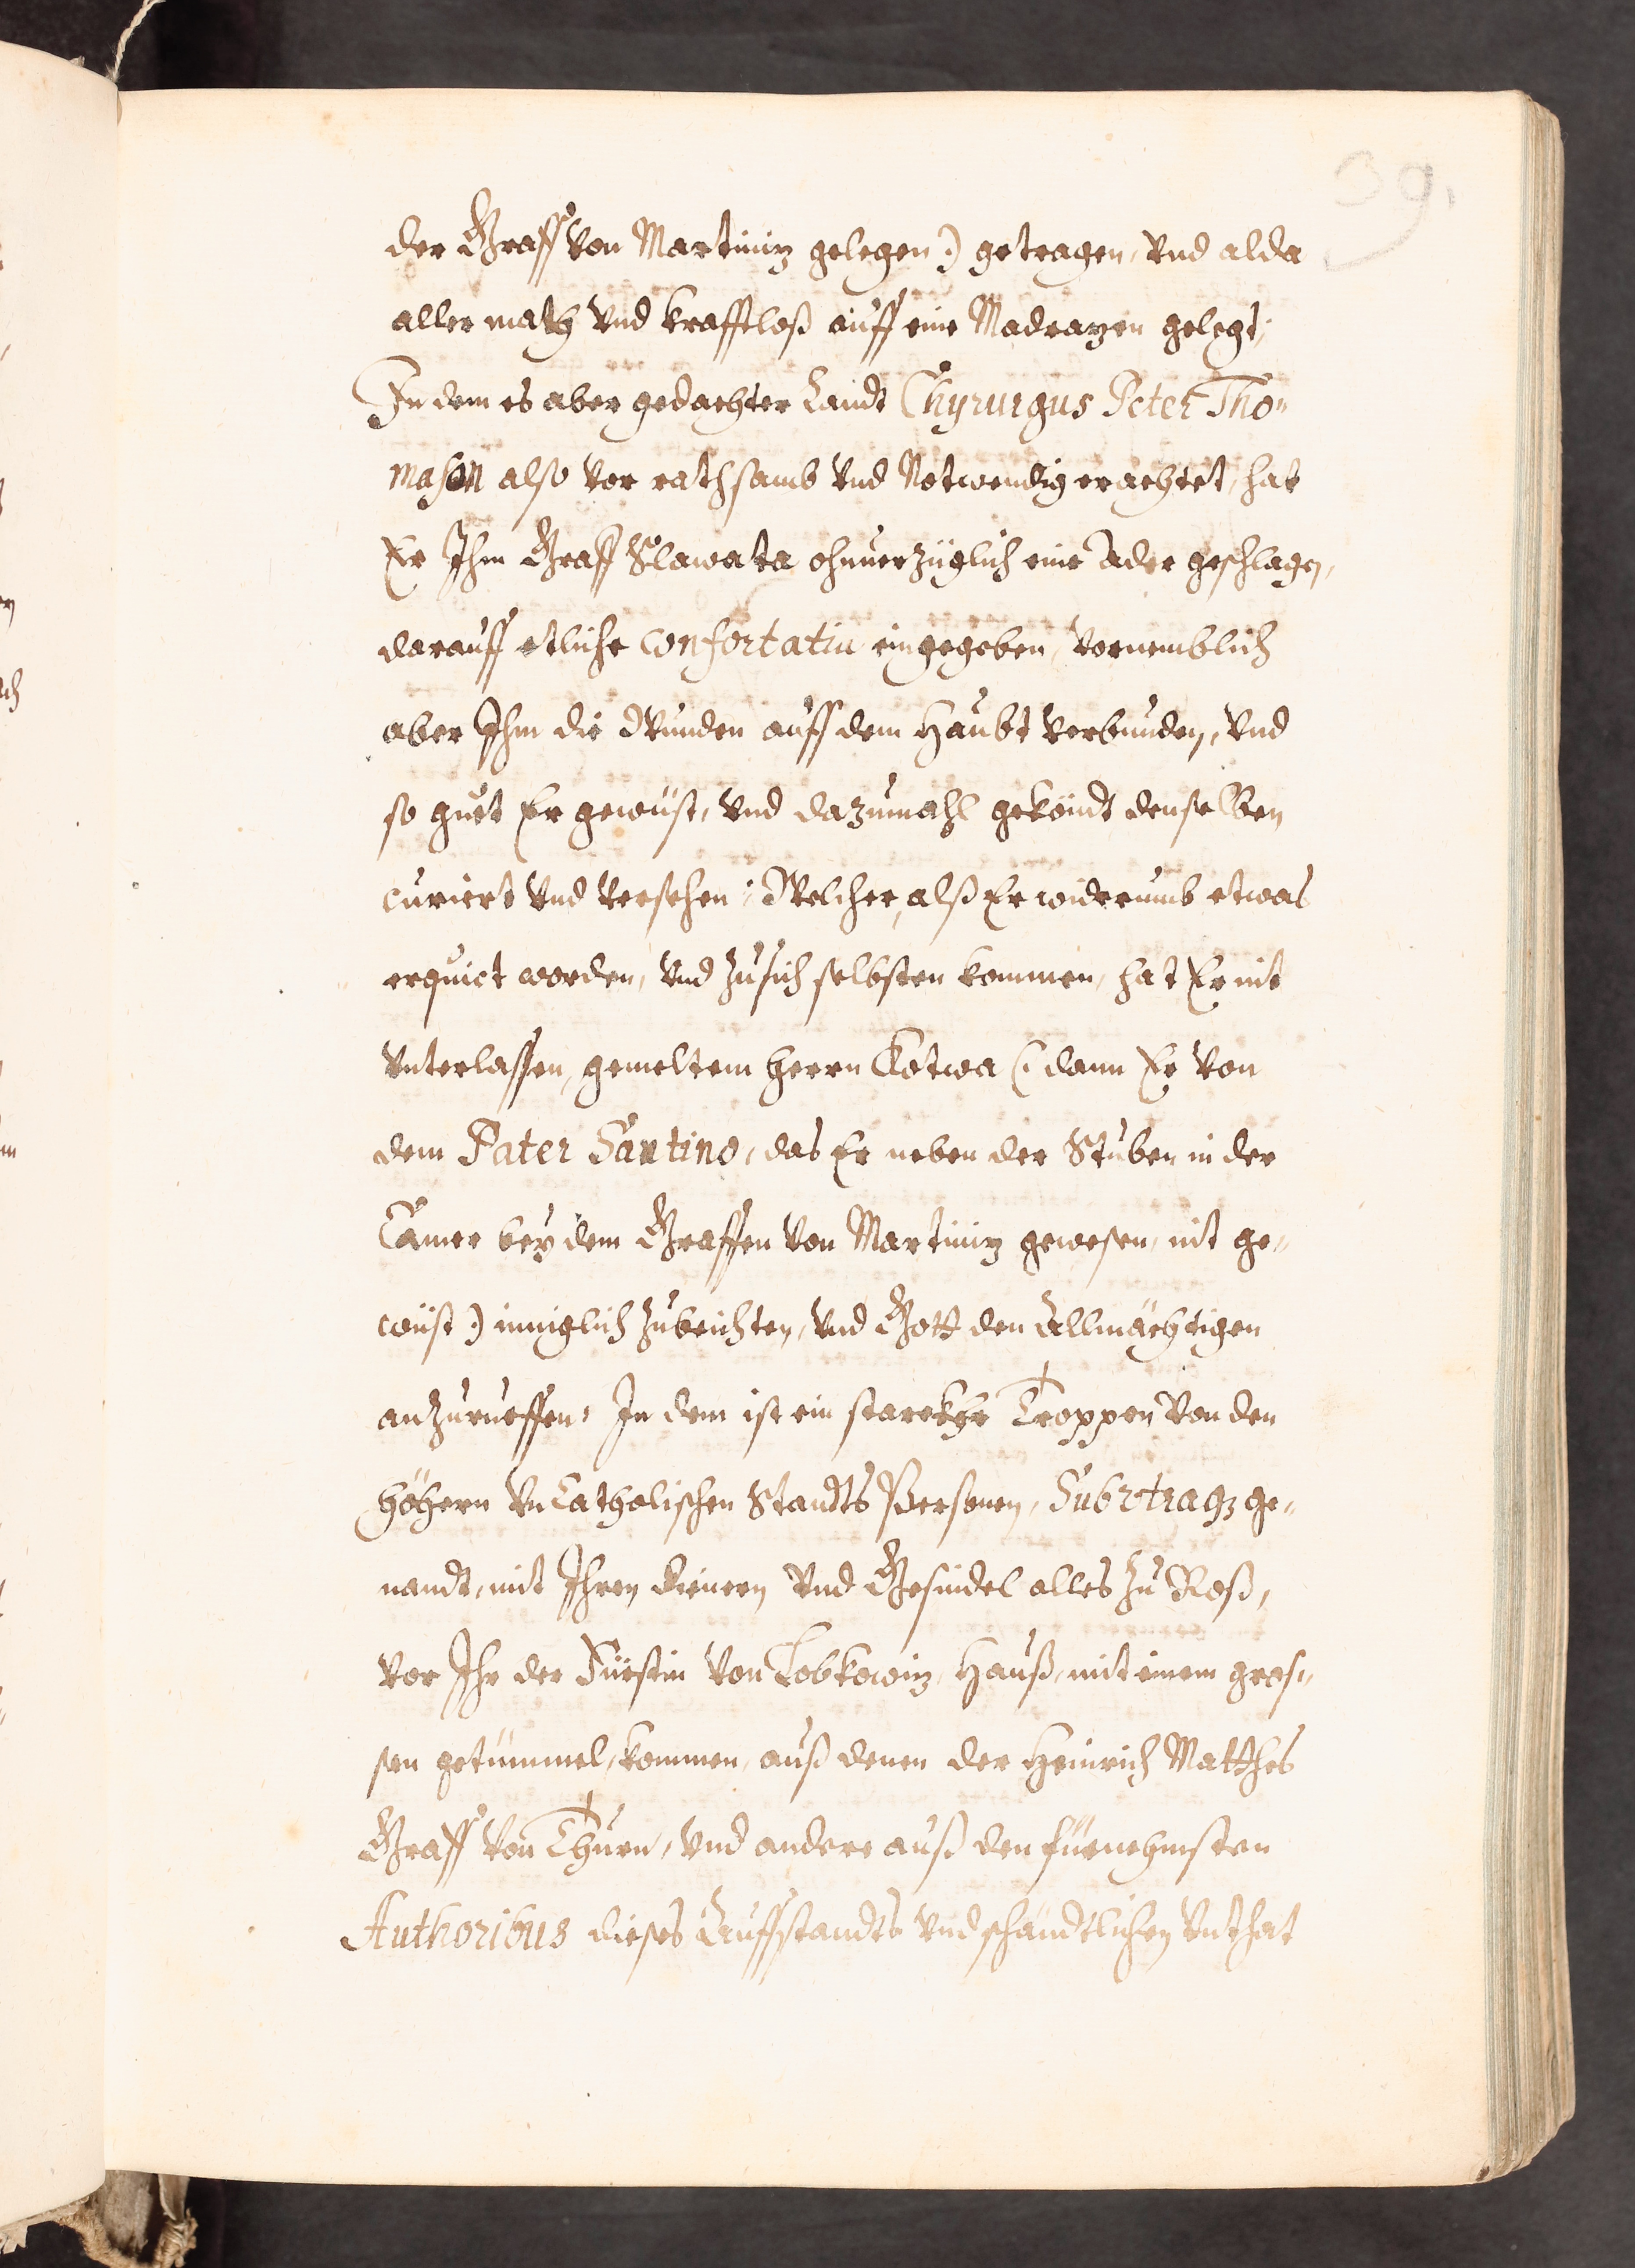 39.
der Graff von Martiniz gelegen :) getragen, vnd alda
aller math vnd krafftloß auff eine Madrazen gelegt;
In dem es aber gedachter Landt Chyrurgus Peter Tho-
mason also vor rathsamb vnd Notwendig erachtet, hat
Er Ihm Graff Slawata ohnuerzüglich eine Ader geschlagen,
darauff etliche Confortatiu eingegeben, vornemblich
aber Ihm die Wunden auff dem Haubt verbunden, vnd
so guet Er gewüst, vnd dazumahl geköndt denselben
curiert vnd versehen; Welcher, alß Er widerumb etwas
erquict worden, vnd zu sich selbsten kommen, hat Er nit
vnterlassen, gemeltem Herrn Kotwa (: dann Er von
dem Pater Santino, das Er neben der Stuben in der
Camer bey dem Graffen von Martiniz gewesen, nit ge-
wüst :) inniglich zubeichten, vnd Gott den Allmächtigen
anzurueffen. In dem ist ein starckhe Troppen von den
höhern VnCatholischen Standts Persohnen, Subvtraqz ge-
nandt, mit Ihren Dienern vnd Gesindel alles zu Roß,
vor Ihr der Fürstin von Lobkowiz, Hauß, mit einem gros-
sen getümmel, kommen, auß denen der Heinrich Matthes
Graff von Thurn, vnd andere auß den fürnehmsten
Authoribus dieses Auffstandts vnd schändtlichen vnthat